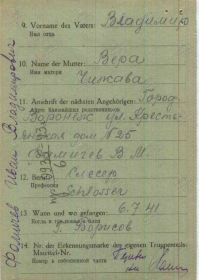 9. Vorname des Vaters: Владимир
Имя отца
10. Name der Mutter: Вера
Имя матери
Чижова
11. Anschrift der nächsten Angehörigen: Город
Адрес ближайших родственников
Воронеж ул. Кресть-
янская дом 125
Фамичев В. М.
12. Beruf: Слесар
Профессия Schlosser
13. Wann und wo gefangen: 6.7.41
Когда и где взят в плен
г. Борисов
14. Nr. der Erkennungsmarke des eigenen Truppenteils:
Номер в собственной части
Фамичев Иван Владимирович